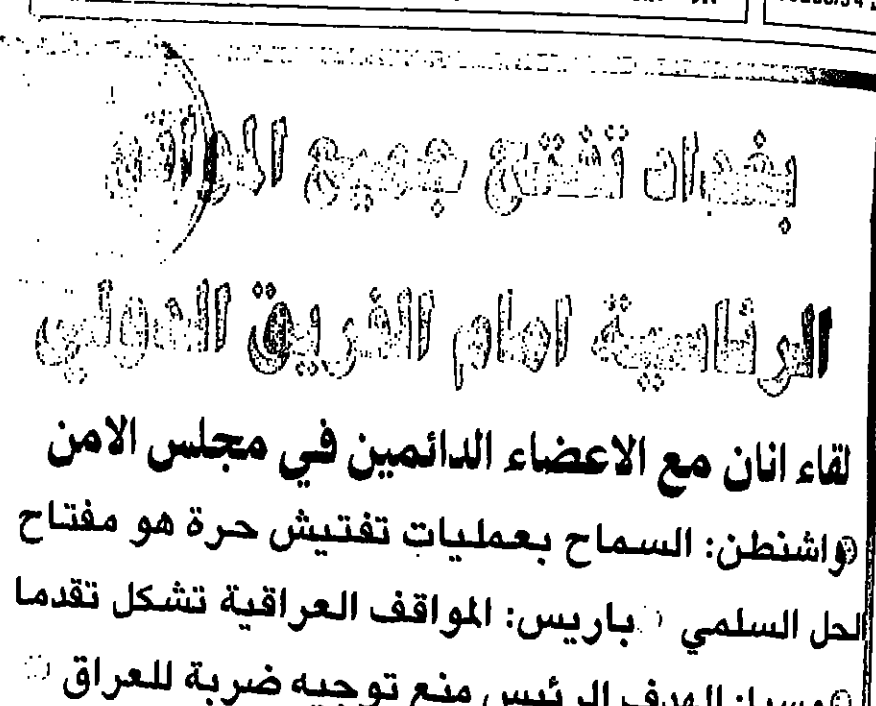 بغداد تفتح جميع المواقع
الرئاسية امام الفريق الدولي
لقاء انان مع الاعضاء الدائمين في مجلس الامن
واشنطن: السماح بعمليات تفتيش حرة هو مفتاح
الحل السلمي باريس: المواقف العراقية تشكل تقدما
الهدف الرئيس منع توجيه ضربة للعراق